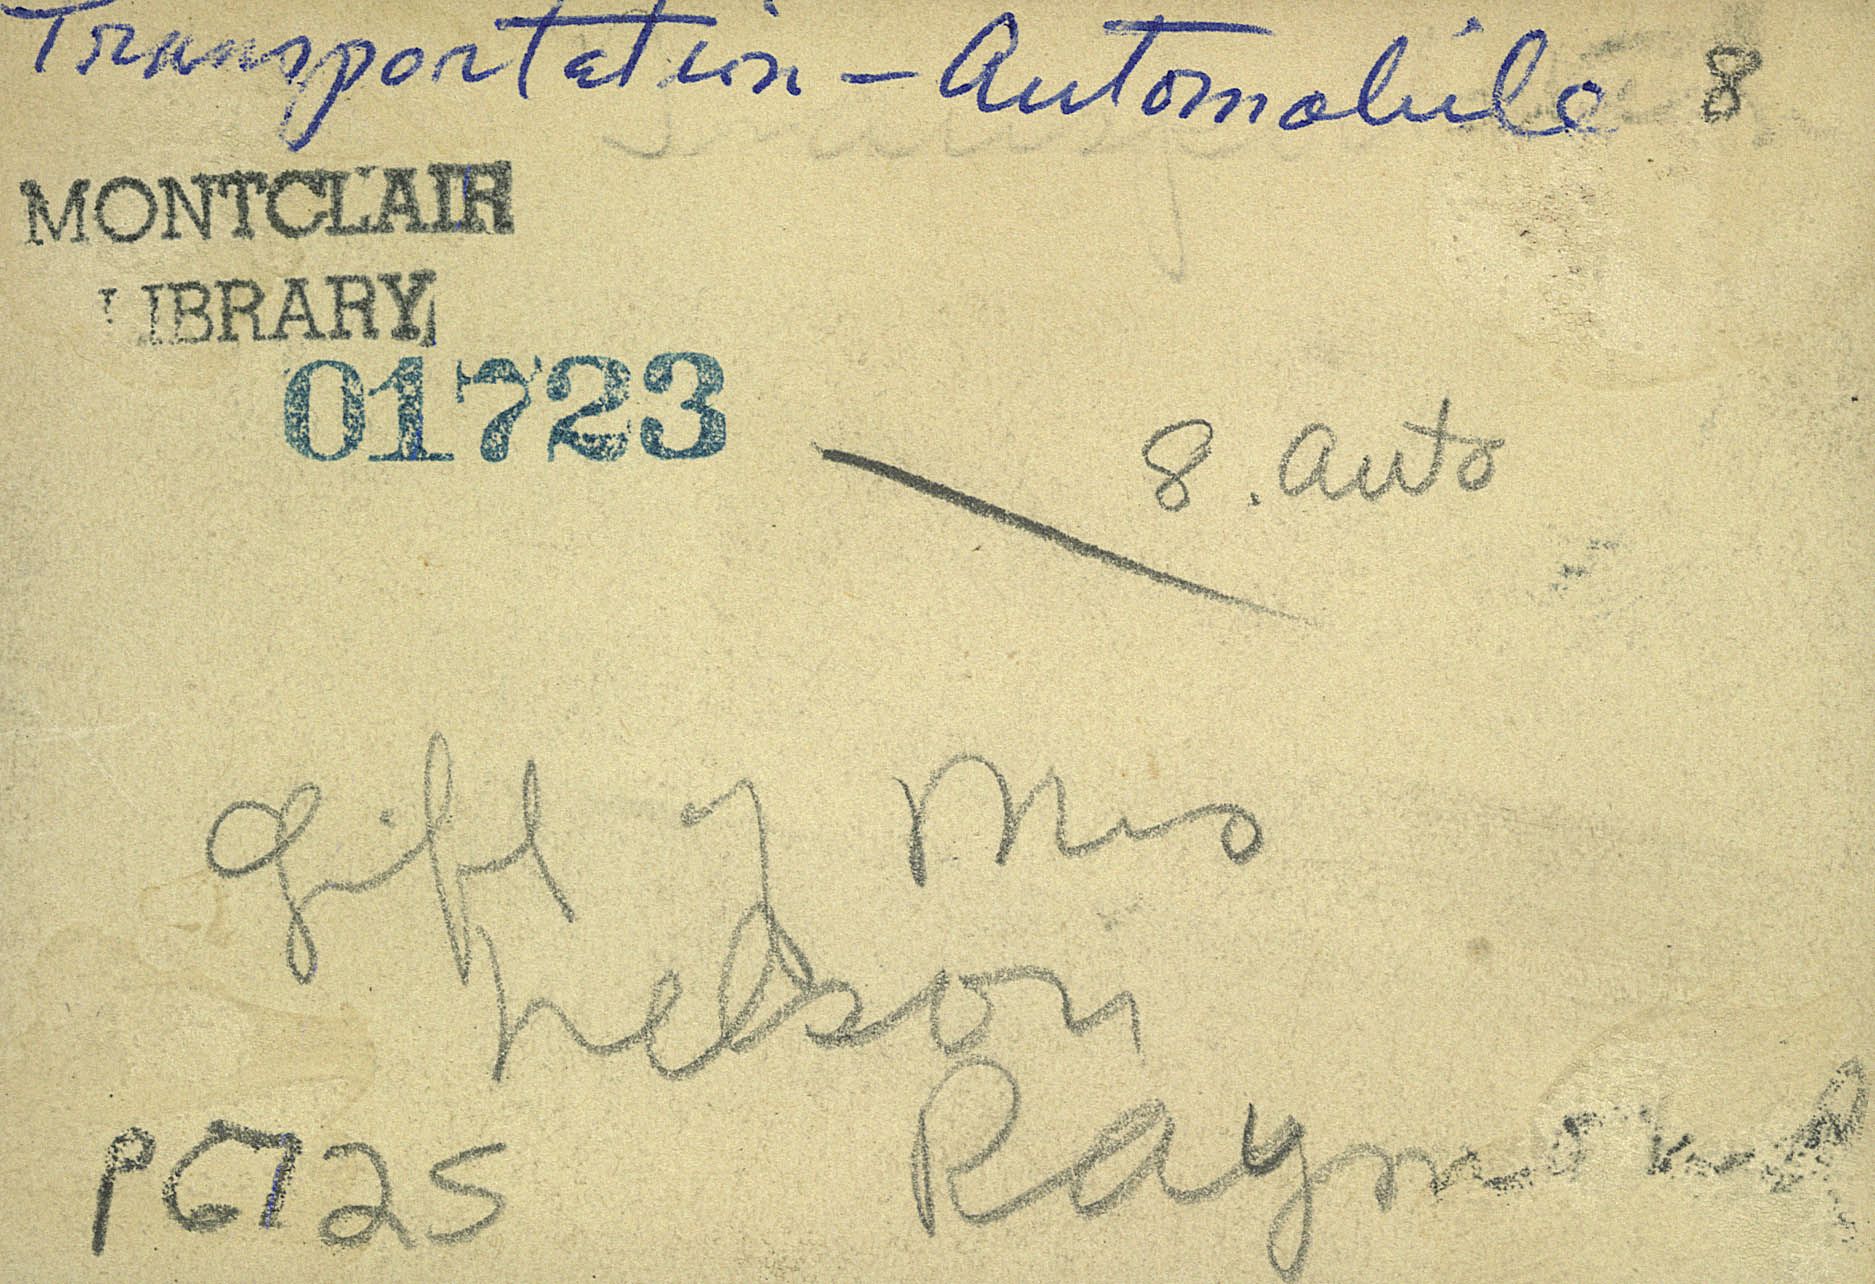 Transportation - Automobile 8
MONTCLAIR
LIBRARY
01723
8. auto
Gift of Mrs
Nelson
Raymond
P6725